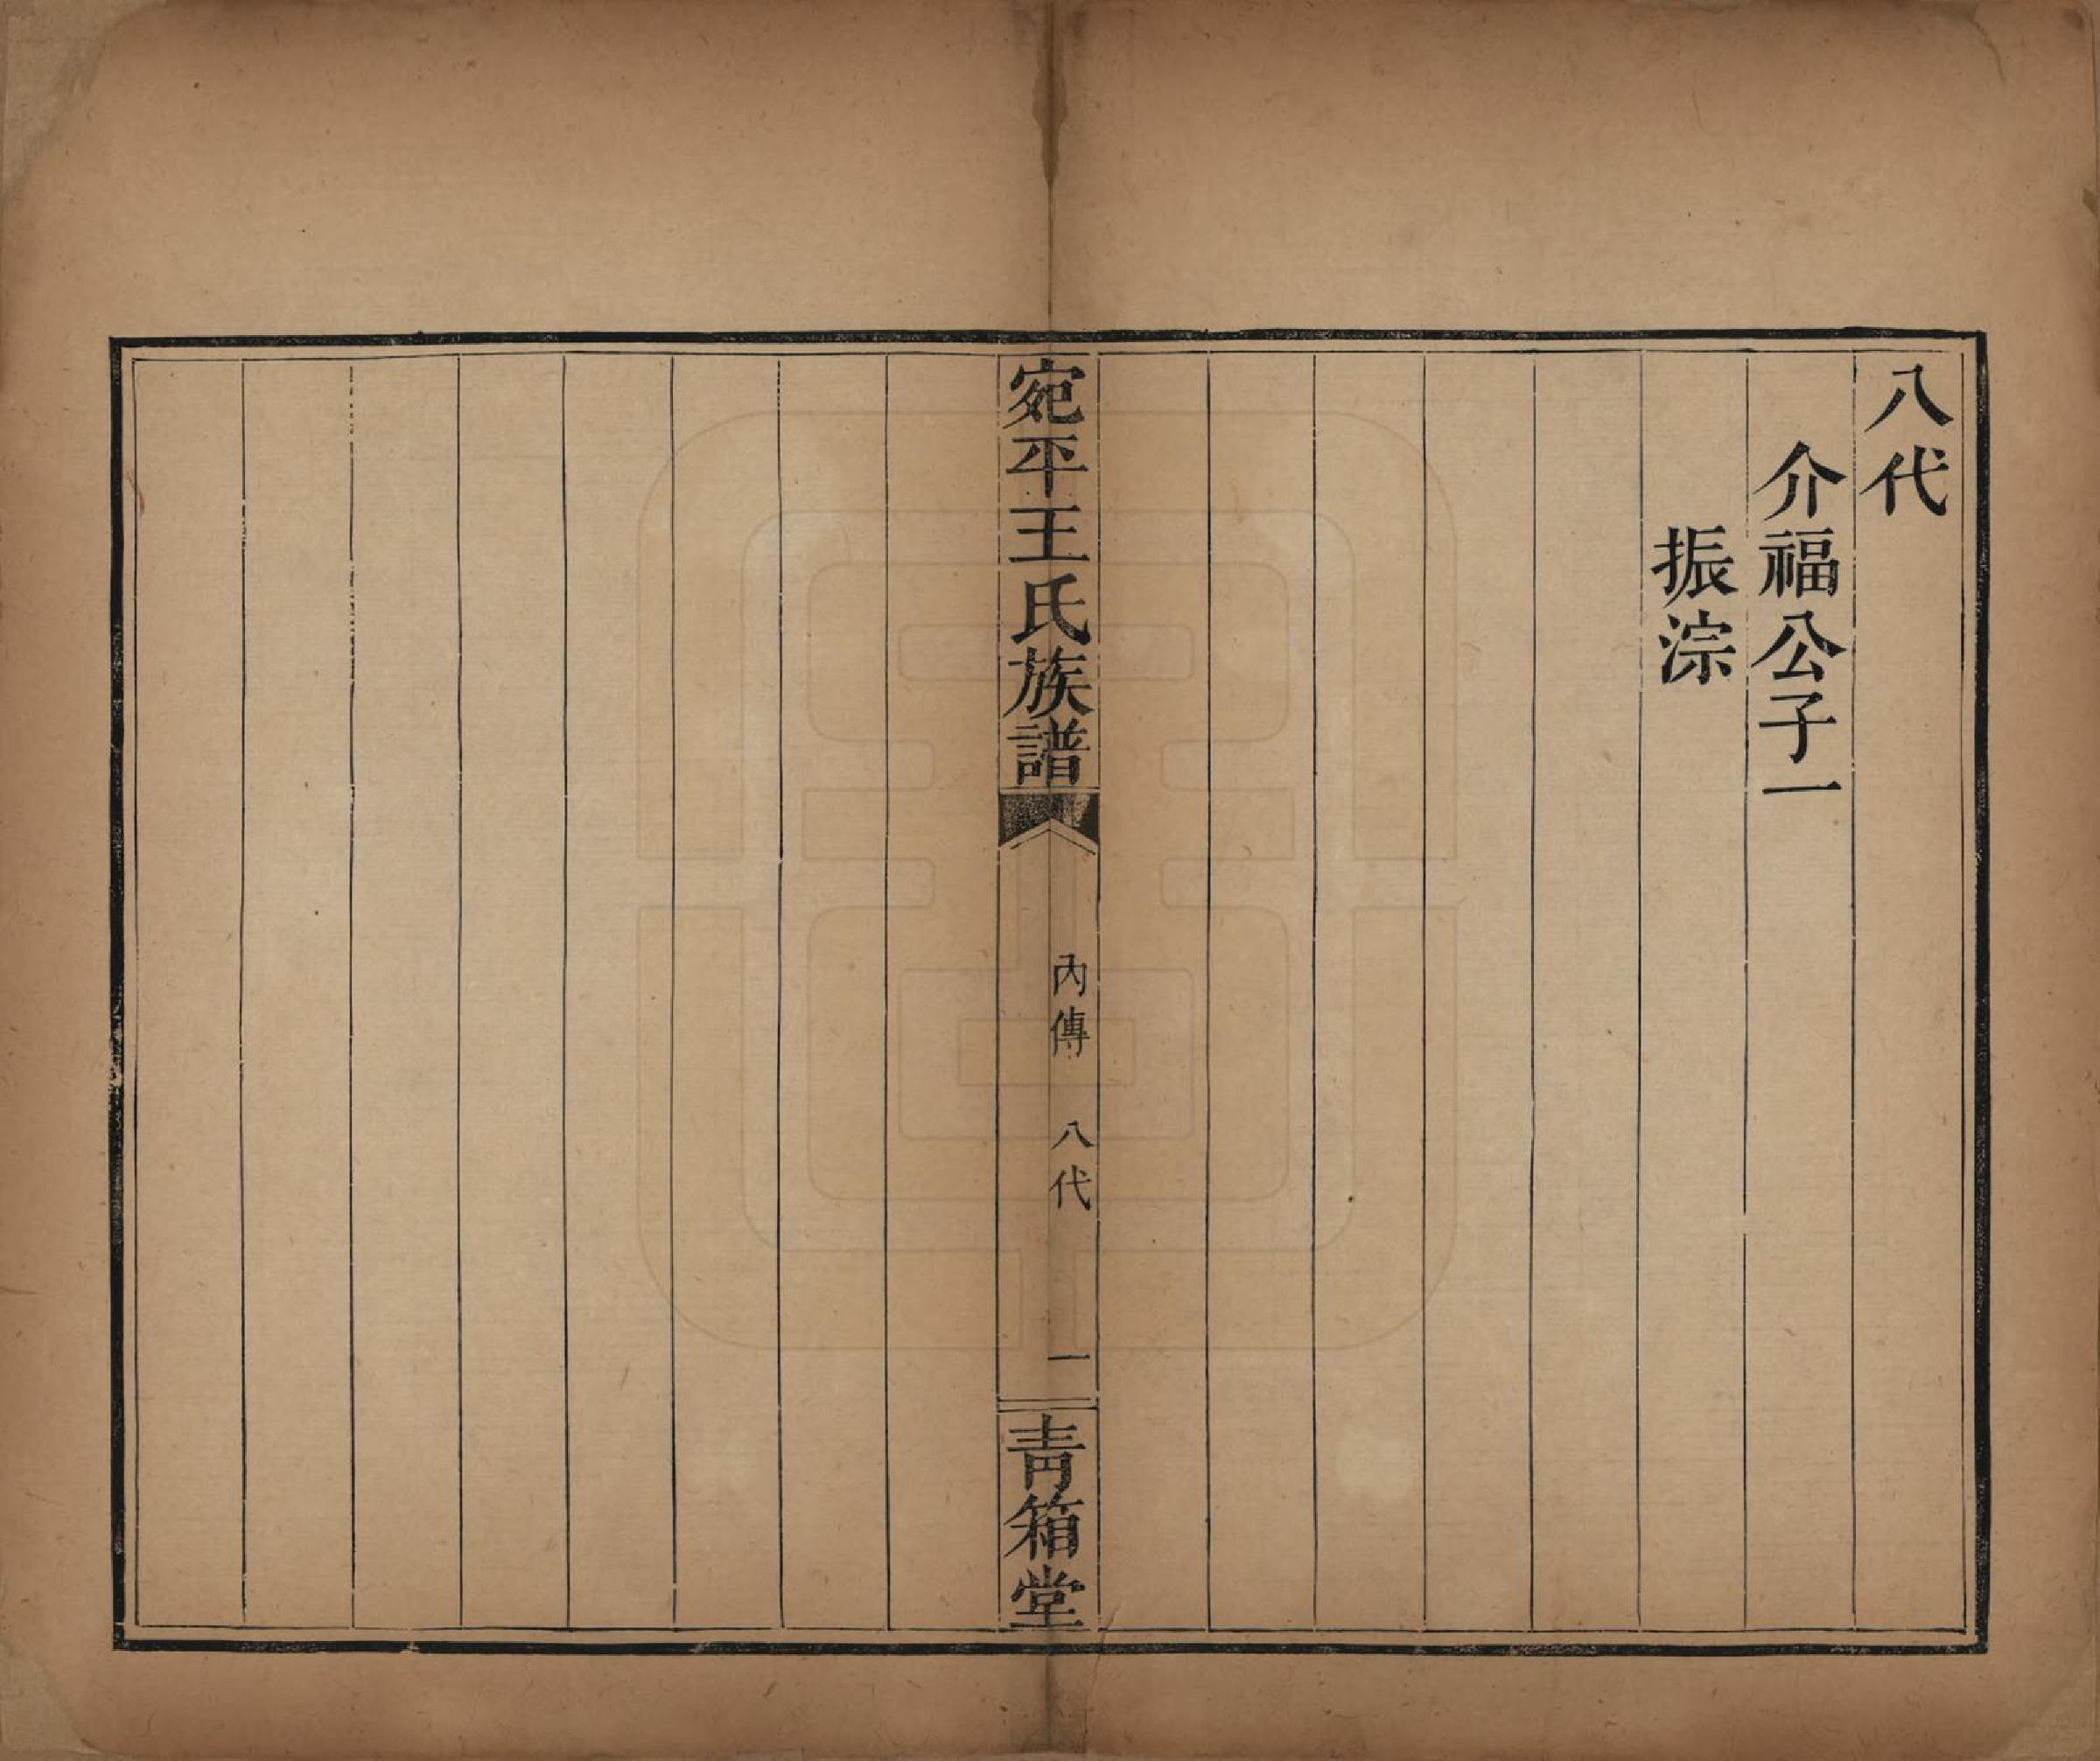 八代
介福公子一
振淙
宛平王氏族譜
內傳　八代　一
青箱堂